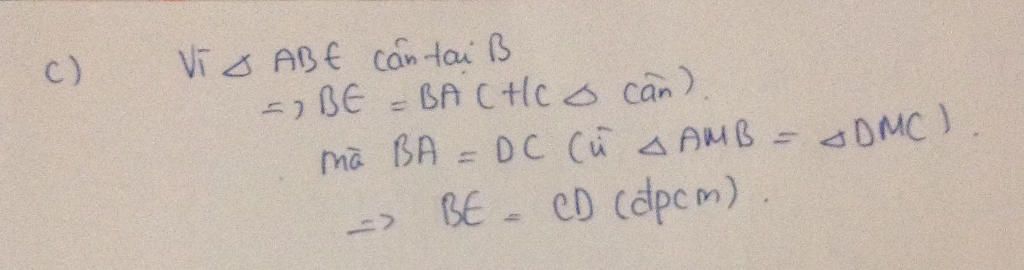 c) Vì △ ABE cân tại B
=> BE = BA (t/c △ cân).
mà BA = DC (vì △ AMB = △ DMC).
=> BE = CD (đpcm).